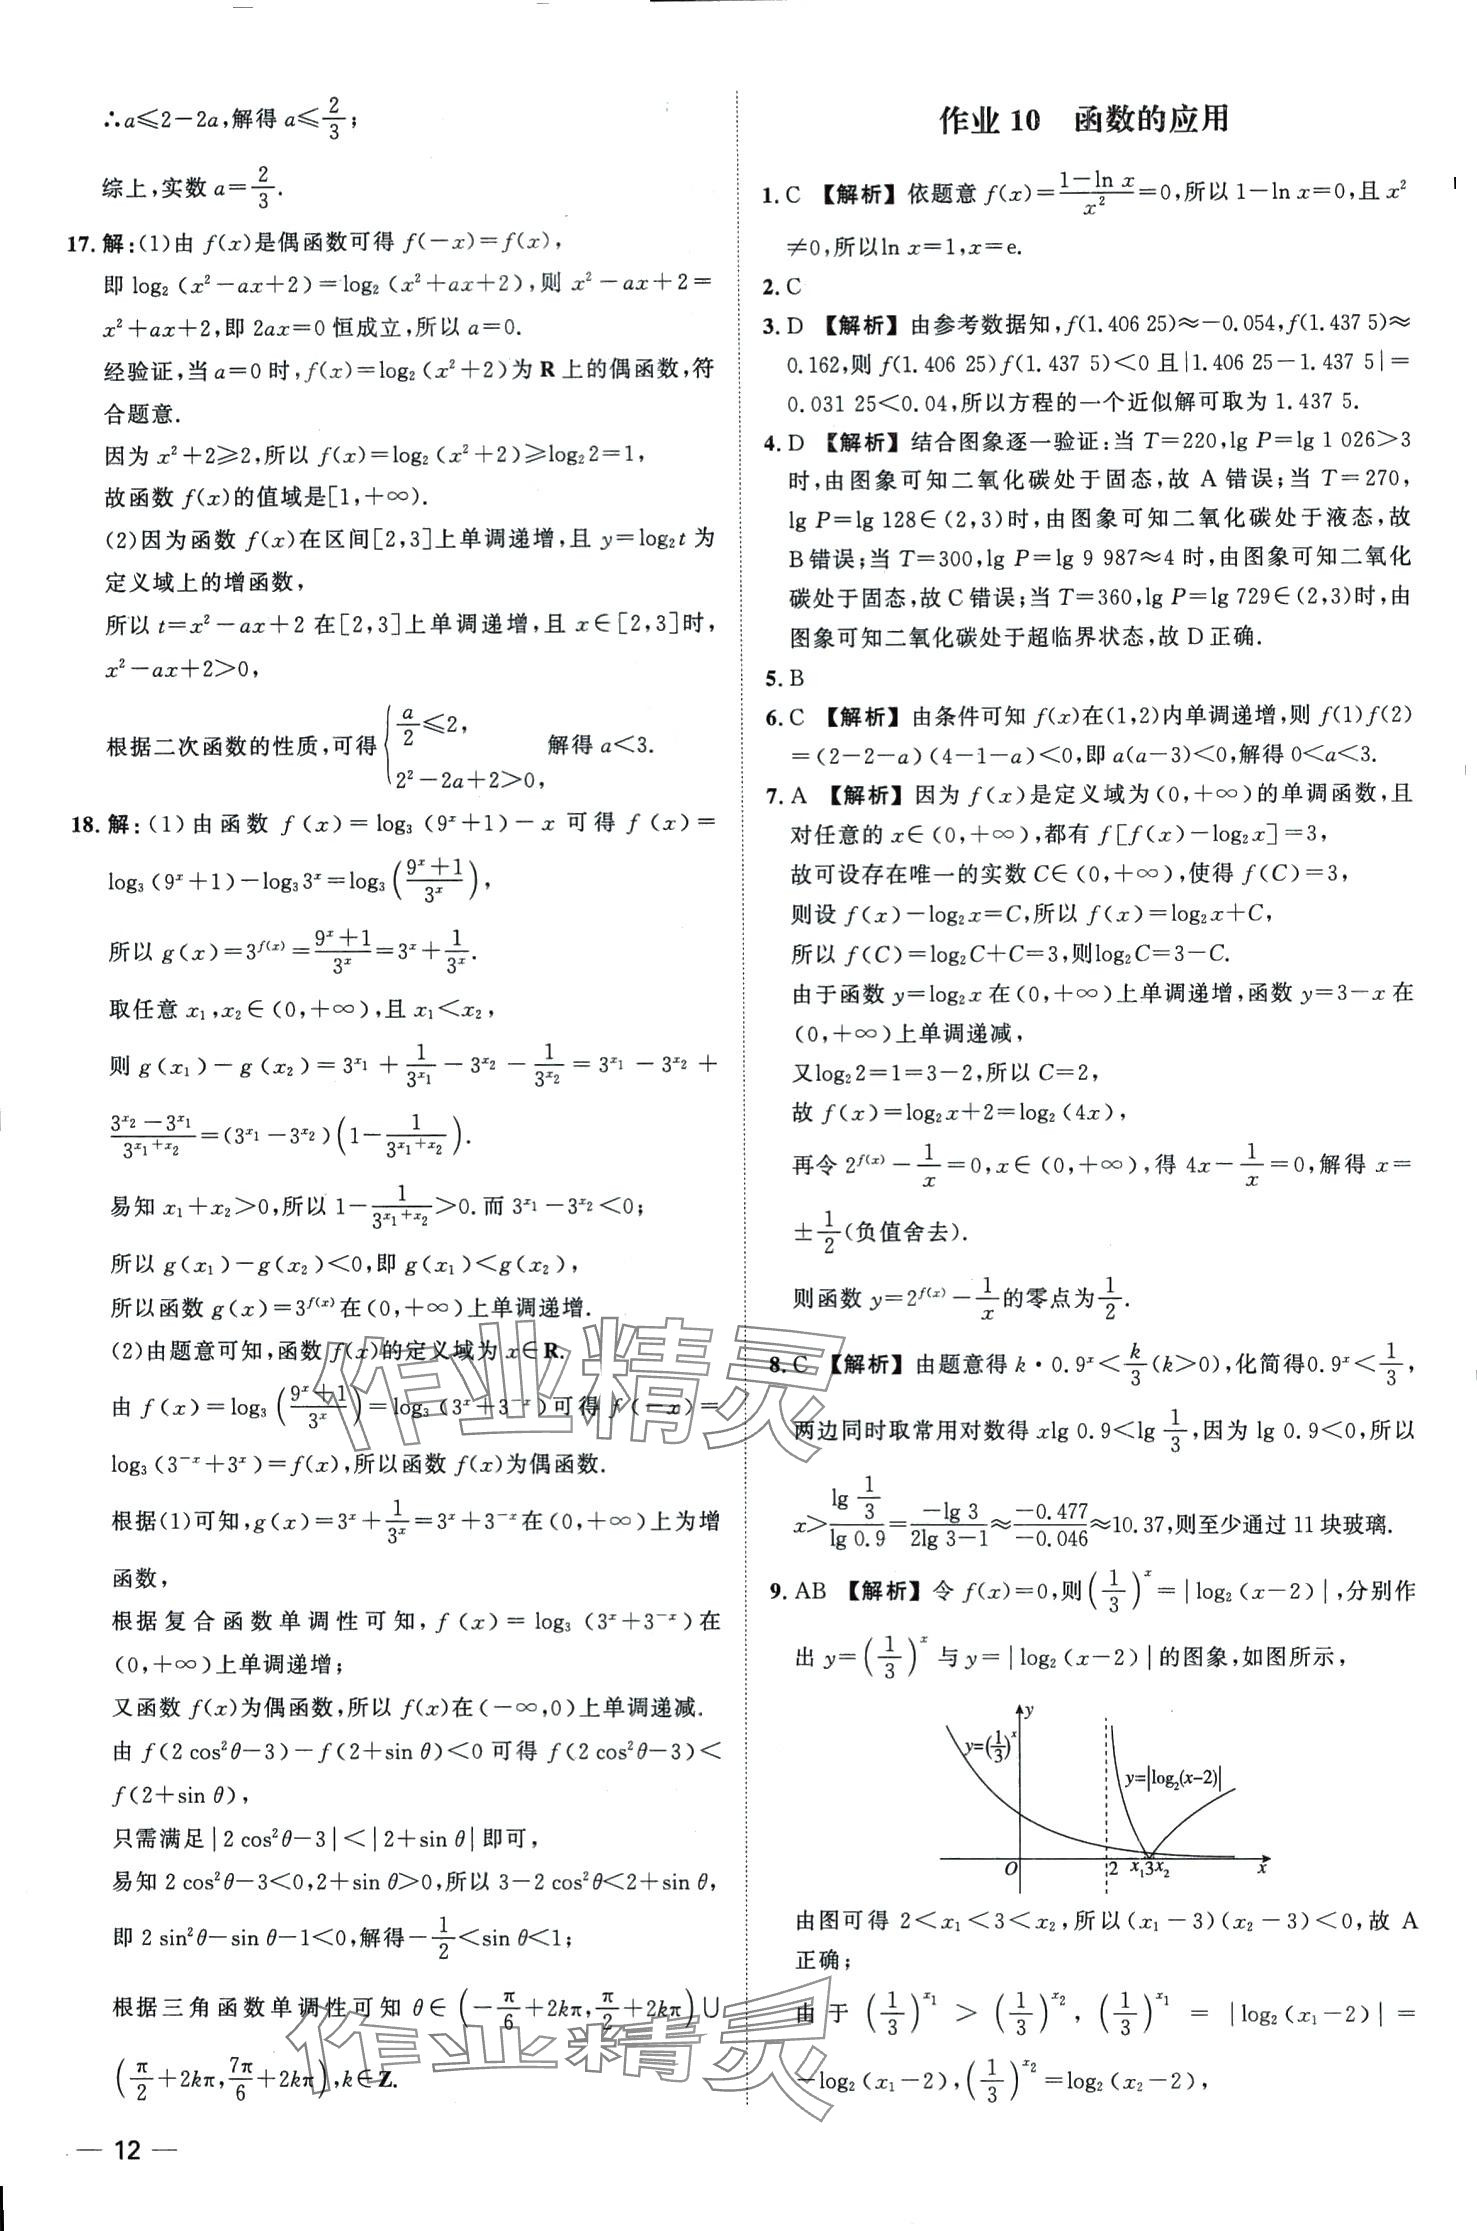 ∴a≤2−2a,解得 a≤2/3;
综上,实数 a=2/3.
17. 解:(1)由 f(x)是偶函数可得 f(−x)=f(x),
即 log₂(x²−ax+2)=log₂(x²+ax+2),则 x²−ax+2=
x²+ax+2,即 2ax=0 恒成立,所以 a=0.
经验证,当 a=0 时,f(x)=log₂(x²+2)为 R 上的偶函数,符
合题意.
因为 x²+2≥2,所以 f(x)=log₂(x²+2)≥log₂2=1,
故函数 f(x)的值域是[1,+∞).
(2)因为函数 f(x)在区间[2,3]上单调递增,且 y=log₂t 为
定义域上的增函数,
所以 t=x²−ax+2 在[2,3]上单调递增,且 x∈[2,3]时,
x²−ax+2>0,
根据二次函数的性质,可得{a/2≤2, 2²−2a+2>0, 解得 a<3.
18. 解:(1)由函数 f(x)=log₃(9^x+1)−x 可得 f(x)=
log₃(9^x+1)−log₃3^x=log₃((9^x+1)/3^x),
所以 g(x)=3^{f(x)}=(9^x+1)/3^x=3^x+1/3^x.
取任意 x₁,x₂∈(0,+∞),且 x₁<x₂,
则 g(x₁)−g(x₂)=3^{x₁}+1/3^{x₁}−3^{x₂}−1/3^{x₂}=3^{x₁}−3^{x₂}+
(3^{x₂}−3^{x₁})/3^{x₁+x₂}=(3^{x₁}−3^{x₂})(1−1/3^{x₁+x₂}).
易知 x₁+x₂>0,所以 1−1/3^{x₁+x₂}>0.而 3^{x₁}−3^{x₂}<0;
所以 g(x₁)−g(x₂)<0,即 g(x₁)<g(x₂),
所以函数 g(x)=3^{f(x)}在(0,+∞)上单调递增.
(2)由题意可知,函数 f(x)的定义域为 x∈R.
由 f(x)=log₃((9^x+1)/3^x)=log₃(3^x+3^{−x})可得 f(−x)=
log₃(3^{−x}+3^x)=f(x),所以函数 f(x)为偶函数.
根据(1)可知,g(x)=3^x+1/3^x=3^x+3^{−x}在(0,+∞)上为增
函数,
根据复合函数单调性可知,f(x)=log₃(3^x+3^{−x})在
(0,+∞)上单调递增;
又函数 f(x)为偶函数,所以 f(x)在(−∞,0)上单调递减.
由 f(2 cos²θ−3)−f(2+sin θ)<0 可得 f(2 cos²θ−3)<
f(2+sin θ),
只需满足|2 cos²θ−3|<|2+sin θ|即可,
易知 2 cos²θ−3<0,2+sin θ>0,所以 3−2 cos²θ<2+sin θ,
即 2 sin²θ−sin θ−1<0,解得−1/2<sin θ<1;
根据三角函数单调性可知 θ∈(−π/6+2kπ,π/2+2kπ)∪
(π/2+2kπ,7π/6+2kπ),k∈Z.
— 12 —
作业 10 函数的应用
1. C 【解析】依题意 f(x)=(1−ln x)/x²=0,所以 1−ln x=0,且 x²
≠0,所以ln x=1,x=e.
2. C
3. D 【解析】由参考数据知,f(1.406 25)≈−0.054,f(1.437 5)≈
0.162,则 f(1.406 25)f(1.437 5)<0 且|1.406 25−1.437 5|=
0.031 25<0.04,所以方程的一个近似解可取为 1.437 5.
4. D 【解析】结合图象逐一验证:当 T=220,lg P=lg 1 026>3
时,由图象可知二氧化碳处于固态,故 A 错误;当 T=270,
lg P=lg 128∈(2,3)时,由图象可知二氧化碳处于液态,故
B 错误;当 T=300,lg P=lg 9 987≈4 时,由图象可知二氧化
碳处于固态,故 C 错误;当 T=360,lg P=lg 729∈(2,3)时,由
图象可知二氧化碳处于超临界状态,故 D 正确.
5. B
6. C 【解析】由条件可知 f(x)在(1,2)内单调递增,则 f(1)f(2)
=(2−2−a)(4−1−a)<0,即 a(a−3)<0,解得 0<a<3.
7. A 【解析】因为 f(x)是定义域为(0,+∞)的单调函数,且
对任意的 x∈(0,+∞),都有 f[f(x)−log₂x]=3,
故可设存在唯一的实数 C∈(0,+∞),使得 f(C)=3,
则设 f(x)−log₂x=C,所以 f(x)=log₂x+C,
所以 f(C)=log₂C+C=3,则log₂C=3−C.
由于函数 y=log₂x 在(0,+∞)上单调递增,函数 y=3−x 在
(0,+∞)上单调递减,
又log₂2=1=3−2,所以 C=2,
故 f(x)=log₂x+2=log₂(4x),
再令 2^{f(x)}−1/x=0,x∈(0,+∞),得 4x−1/x=0,解得 x=
±1/2(负值舍去).
则函数 y=2^{f(x)}−1/x的零点为1/2.
8. C 【解析】由题意得 k·0.9^x<k/3(k>0),化简得0.9^x<1/3,
两边同时取常用对数得 xlg 0.9<lg 1/3,因为 lg 0.9<0,所以
x>(lg 1/3)/(lg 0.9)=(−lg 3)/(2lg 3−1)≈(−0.477)/(−0.046)≈10.37,则至少通过 11 块玻璃.
9. AB 【解析】令 f(x)=0,则(1/3)^x=|log₂(x−2)|,分别作
出 y=(1/3)^x 与 y=|log₂(x−2)|的图象,如图所示,
y
y=(1/3)^x
y=|log₂(x−2)|
O 2 x₁3x₂ x
由图可得 2<x₁<3<x₂,所以(x₁−3)(x₂−3)<0,故 A
正确;
由于 (1/3)^{x₁}>(1/3)^{x₂},(1/3)^{x₁}=|log₂(x₁−2)|=
−log₂(x₁−2),(1/3)^{x₂}=log₂(x₂−2),
作业精灵
作业精灵